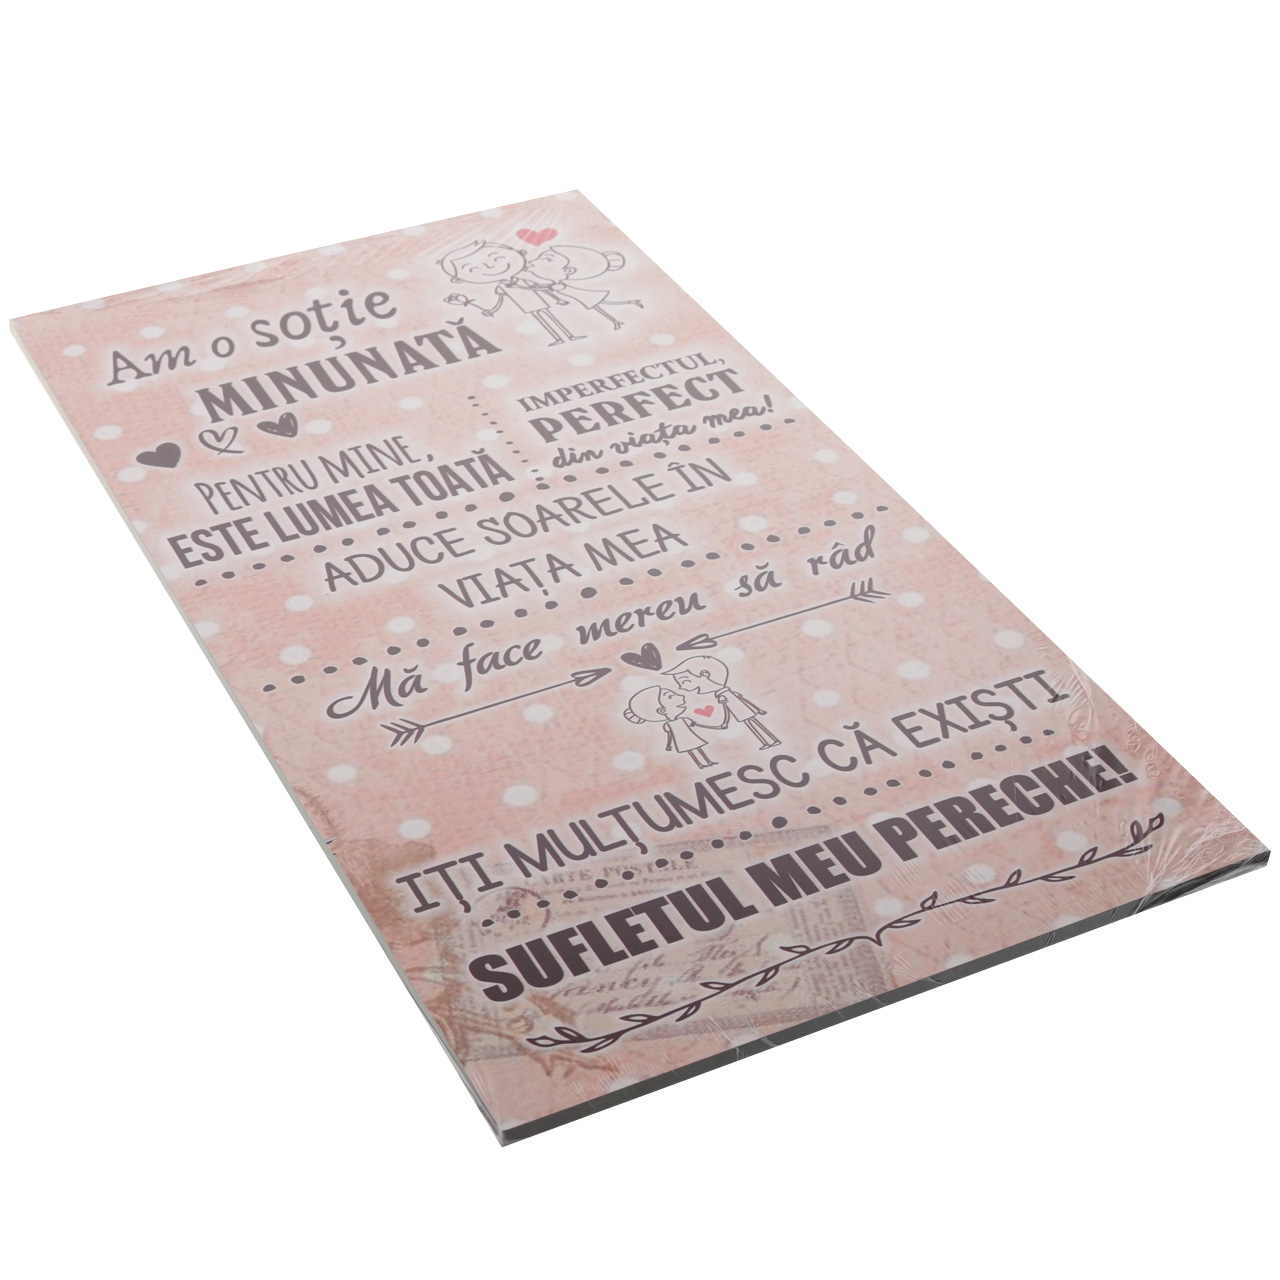 Am o soție
MINUNATĂ
PENTRU MINE,
ESTE LUMEA TOATĂ
IMPERFECTUL,
PERFECT
din viața mea!
ADUCE SOARELE ÎN
VIAȚA MEA
Mă face mereu să râd
IȚI MULȚUMESC CĂ EXIȘTI
SUFLETUL MEU PERECHE!
CARTE POSTALE